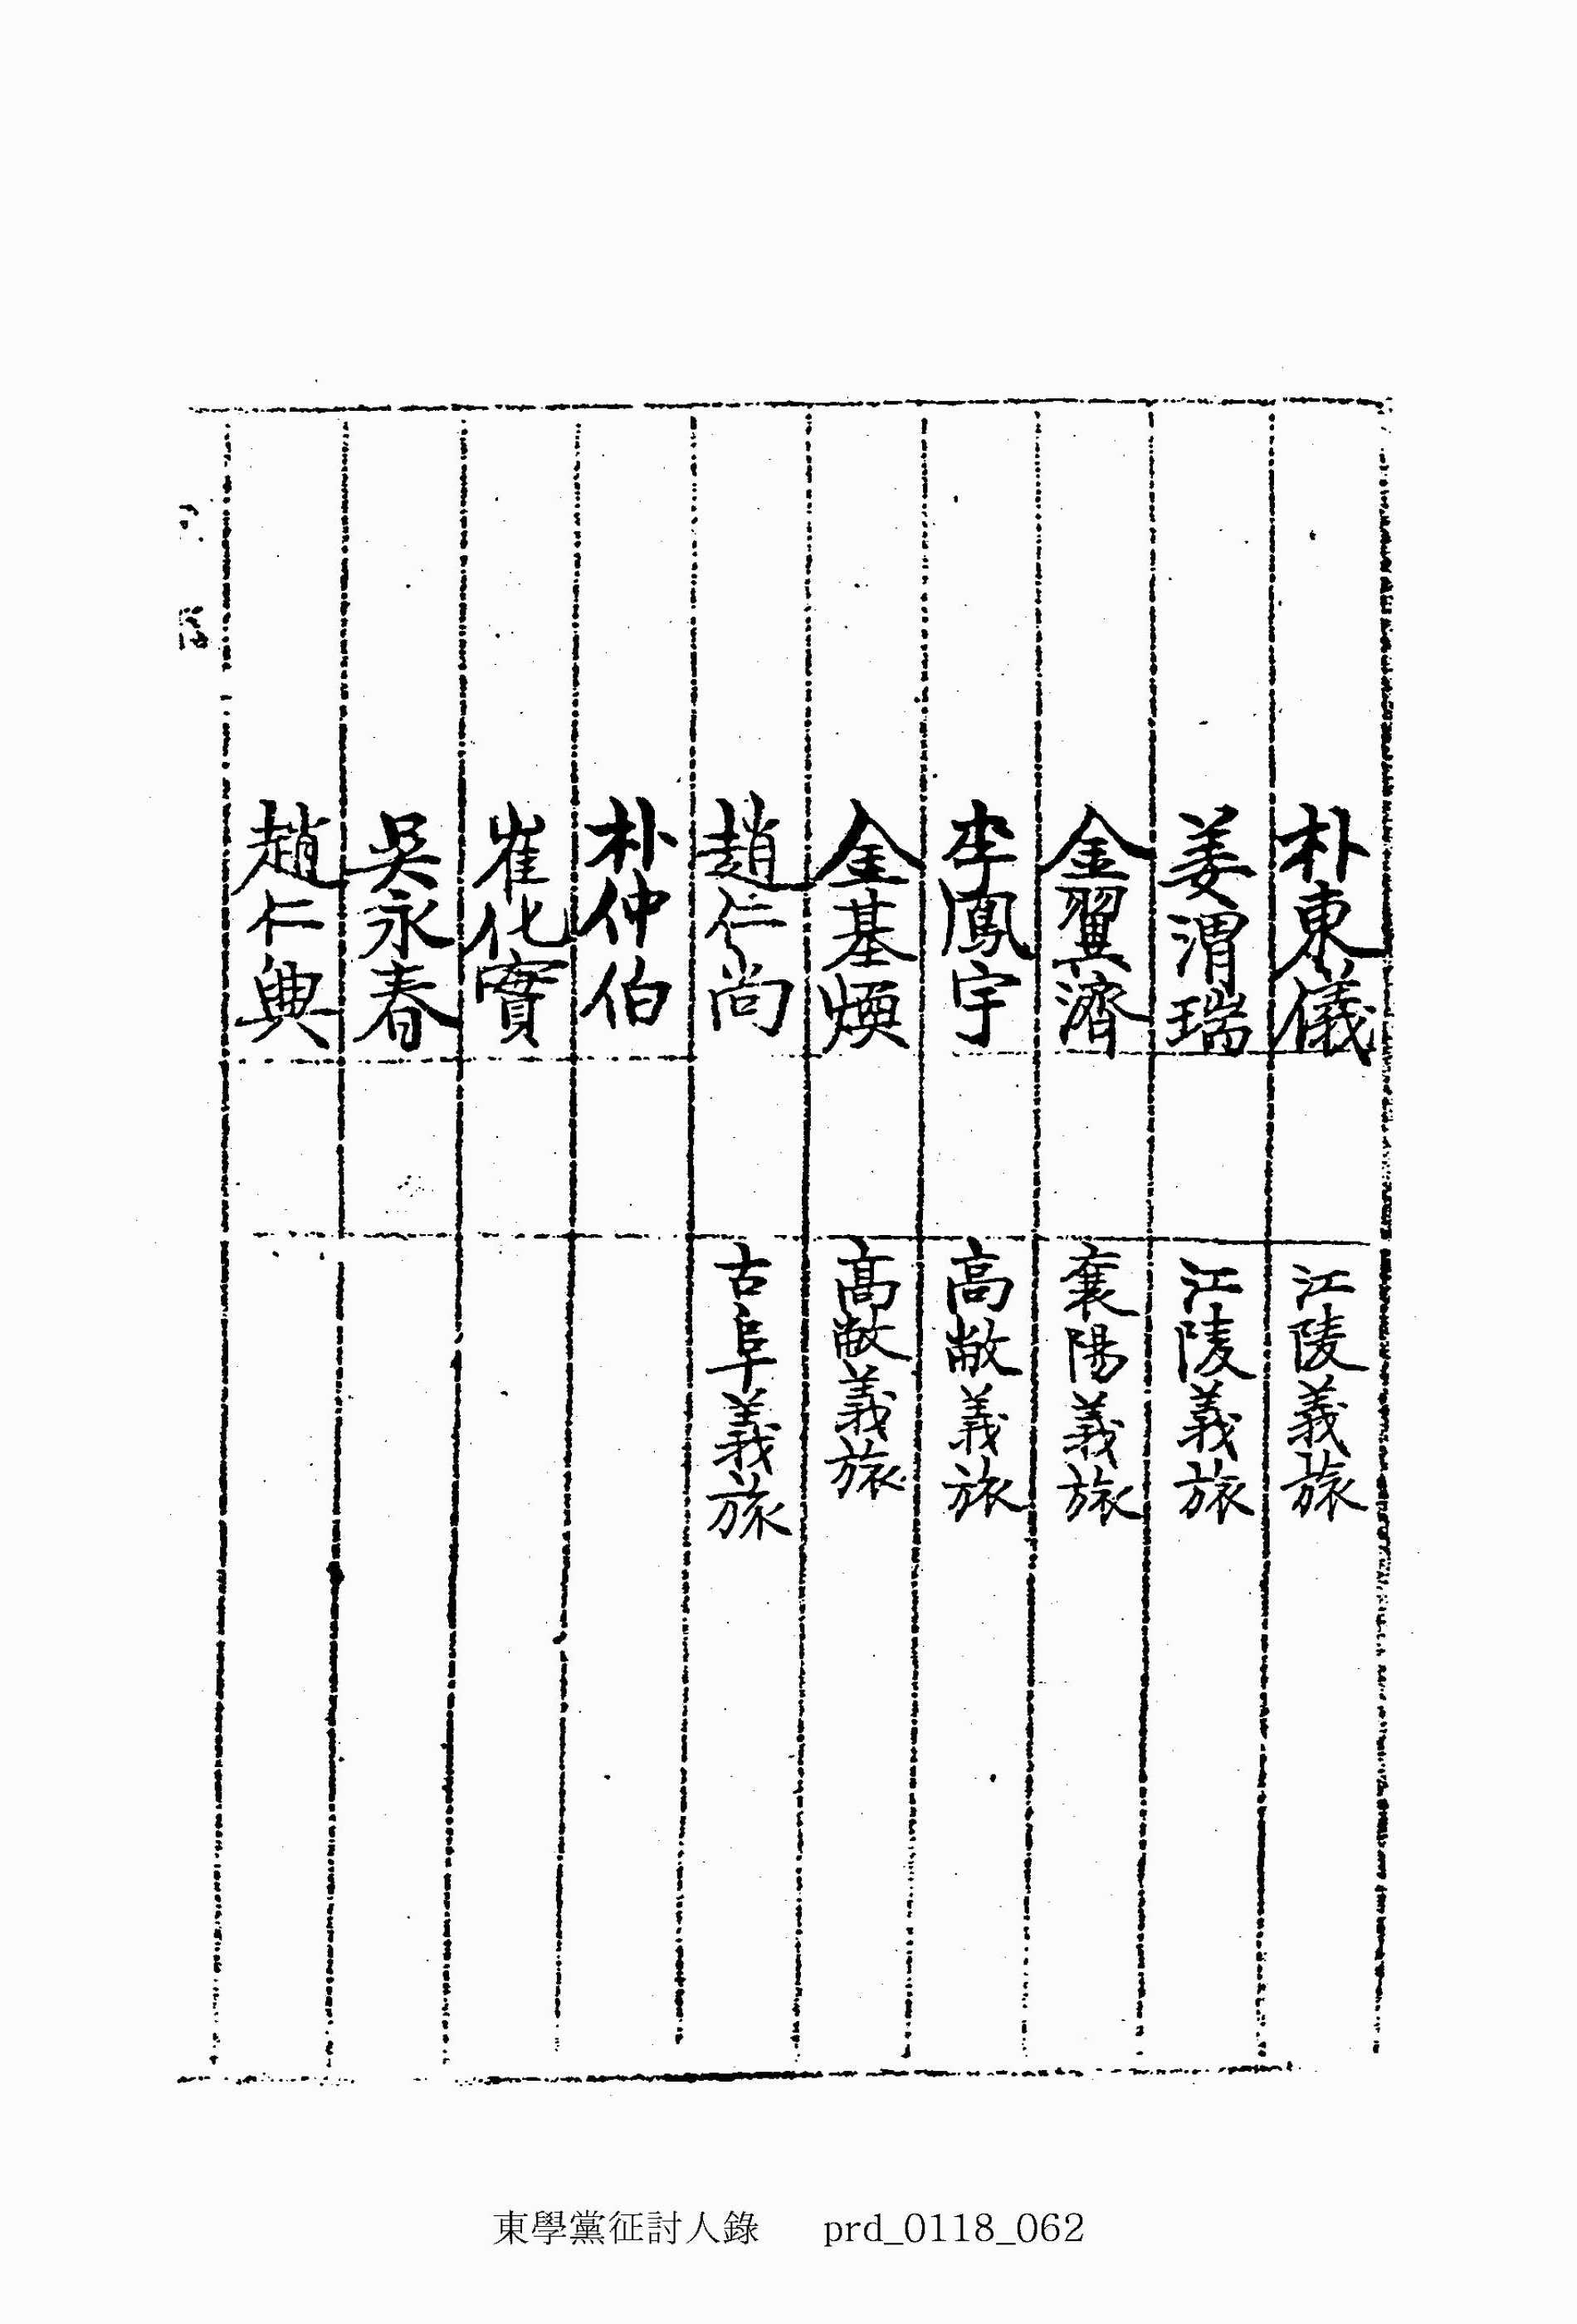 朴東儀 江陵義旅
姜渭瑞 江陵義旅
金翼濟 襄陽義旅
李鳳宇 高敞義旅
金基煥 高敞義旅
趙仁尚 古阜義旅
朴仲伯
崔化實
吳永春
趙仁典
東學黨征討人錄 prd_0118_062